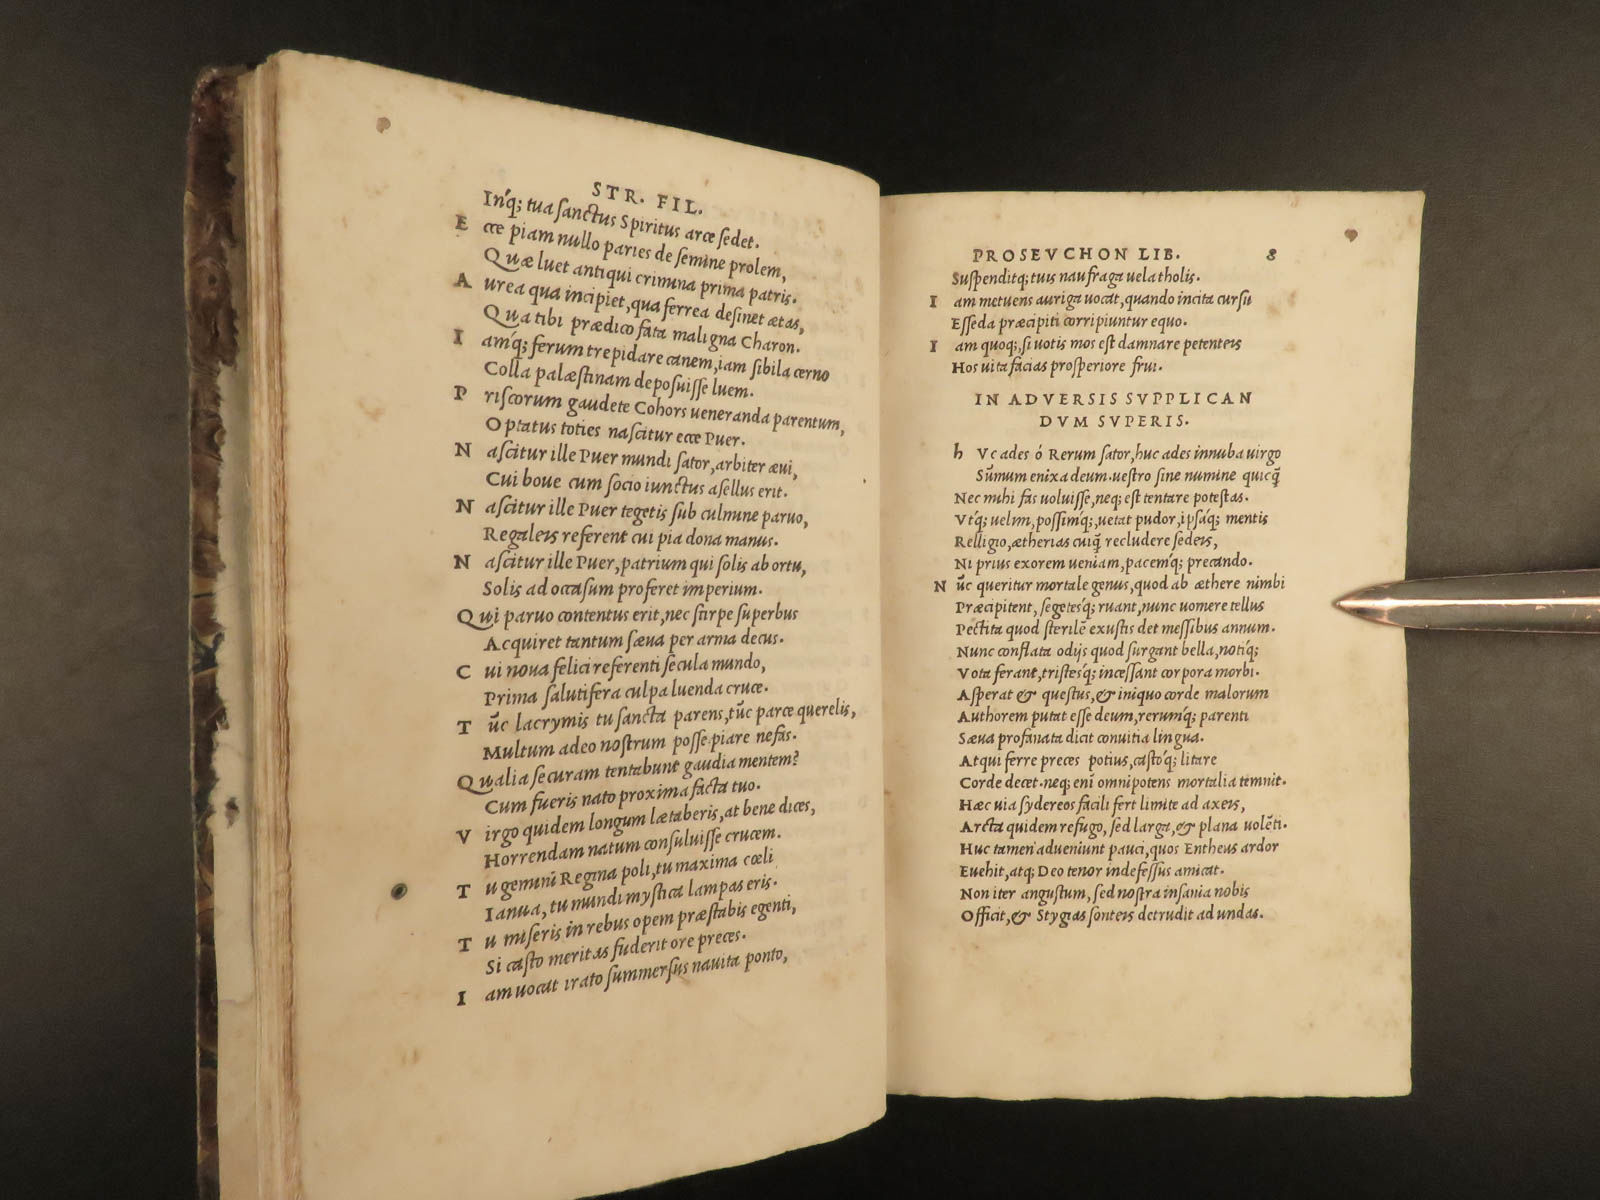 STR. FIL.
Inq́; tua sanctus Spiritus arce sedet.
E cce piam nullo paries de semine prolem,
Quæ luet antiqui crimina prima patris.
A urea qua incipiet, qua ferrea desinet ætas,
Qua tibi prædico fata maligna Charon.
I amq́; ferum trepidare canem, iam sibila cerno
Colla palæstinam deposuisse luem.
P riscorum gaudete Cohors ueneranda parentum,
Optatus toties nascitur ecce Puer.
N ascitur ille Puer mundi sator, arbiter æui,
Cui boue cum socio iunctus asellus erit.
N ascitur ille Puer tegetis sub culmine paruo,
Regaleis referent cui pia dona manus.
N ascitur ille Puer, patrium qui solis ab ortu,
Solis ad occasum proferet imperium.
Qui paruo contentus erit, nec stirpe superbus
Acquiret tantum sæua per arma decus.
C ui noua felici referenti secula mundo,
Prima salutifera culpa luenda cruce.
T ũc lacrymis tu sancta parens, tũc parce querelis,
Multum adeo nostrum posse piare nefas.
Qualia securam tentabunt gaudia mentem?
Cum fueris nato proxima facta tuo.
V irgo quidem longum lætaberis, at bene dices,
Horrendam natum consuluisse crucem.
T u geminũ Regina poli, tu maxima cœli
Ianua, tu mundi mystica lampas eris.
T u miseris in rebus opem præstabis egenti,
Si casto meritas fuderit ore preces.
I am uocat irato summersus nauita ponto,
PROSEVCHON LIB. 8
Suspenditq; tuis naufraga uela tholis.
I am metuens auriga uocat, quando incita cursu
Esseda præcipiti corripiuntur equo.
I am quoq;, si uotis mos est damnare petenteis
Hos uita facias prosperiore frui.
IN ADVERSIS SVPPLICAN
DVM SVPERIS.
h Vc ades ó Rerum sator, huc ades innuba uirgo
Sũmum enixa deum. uestro sine numine quicq̃
Nec mihi fas uoluisse, neq; est tentare potestas.
Vtq́; uelim, possimq́;, uetat pudor, ipsaq́; mentis
Relligio, ætherias cuiq̃ recludere sedeis,
Ni prius exorem ueniam, pacemq́; precando.
N ũc queritur mortale genus, quod ab æthere nimbi
Præcipitent, segetesq́; ruant, nunc uomere tellus
Pectita quod sterilẽ exustis det messibus annum.
Nunc conflata odijs quod surgant bella, notiq́;
Vota ferant, tristesq́; incessant corpora morbi.
Asperat & questus, & iniquo corde malorum
Authorem putat esse deum, rerumq́; parenti
Sæua profanata dicit conuitia lingua.
Atqui ferre preces potius, castoq́; litare
Corde decet. neq; enĩ omnipotens mortalia temnit.
Hæc uia sydereos facili fert limite ad axeis,
Arcta quidem refugo, sed larga, & plana uolẽti.
Huc tamen adueniunt pauci, quos Entheus ardor
Euehit, atq; Deo tenor indefessus amicat.
Non iter angustum, sed nostra insania nobis
Officit, & Stygias sonteis detrudit ad undas.